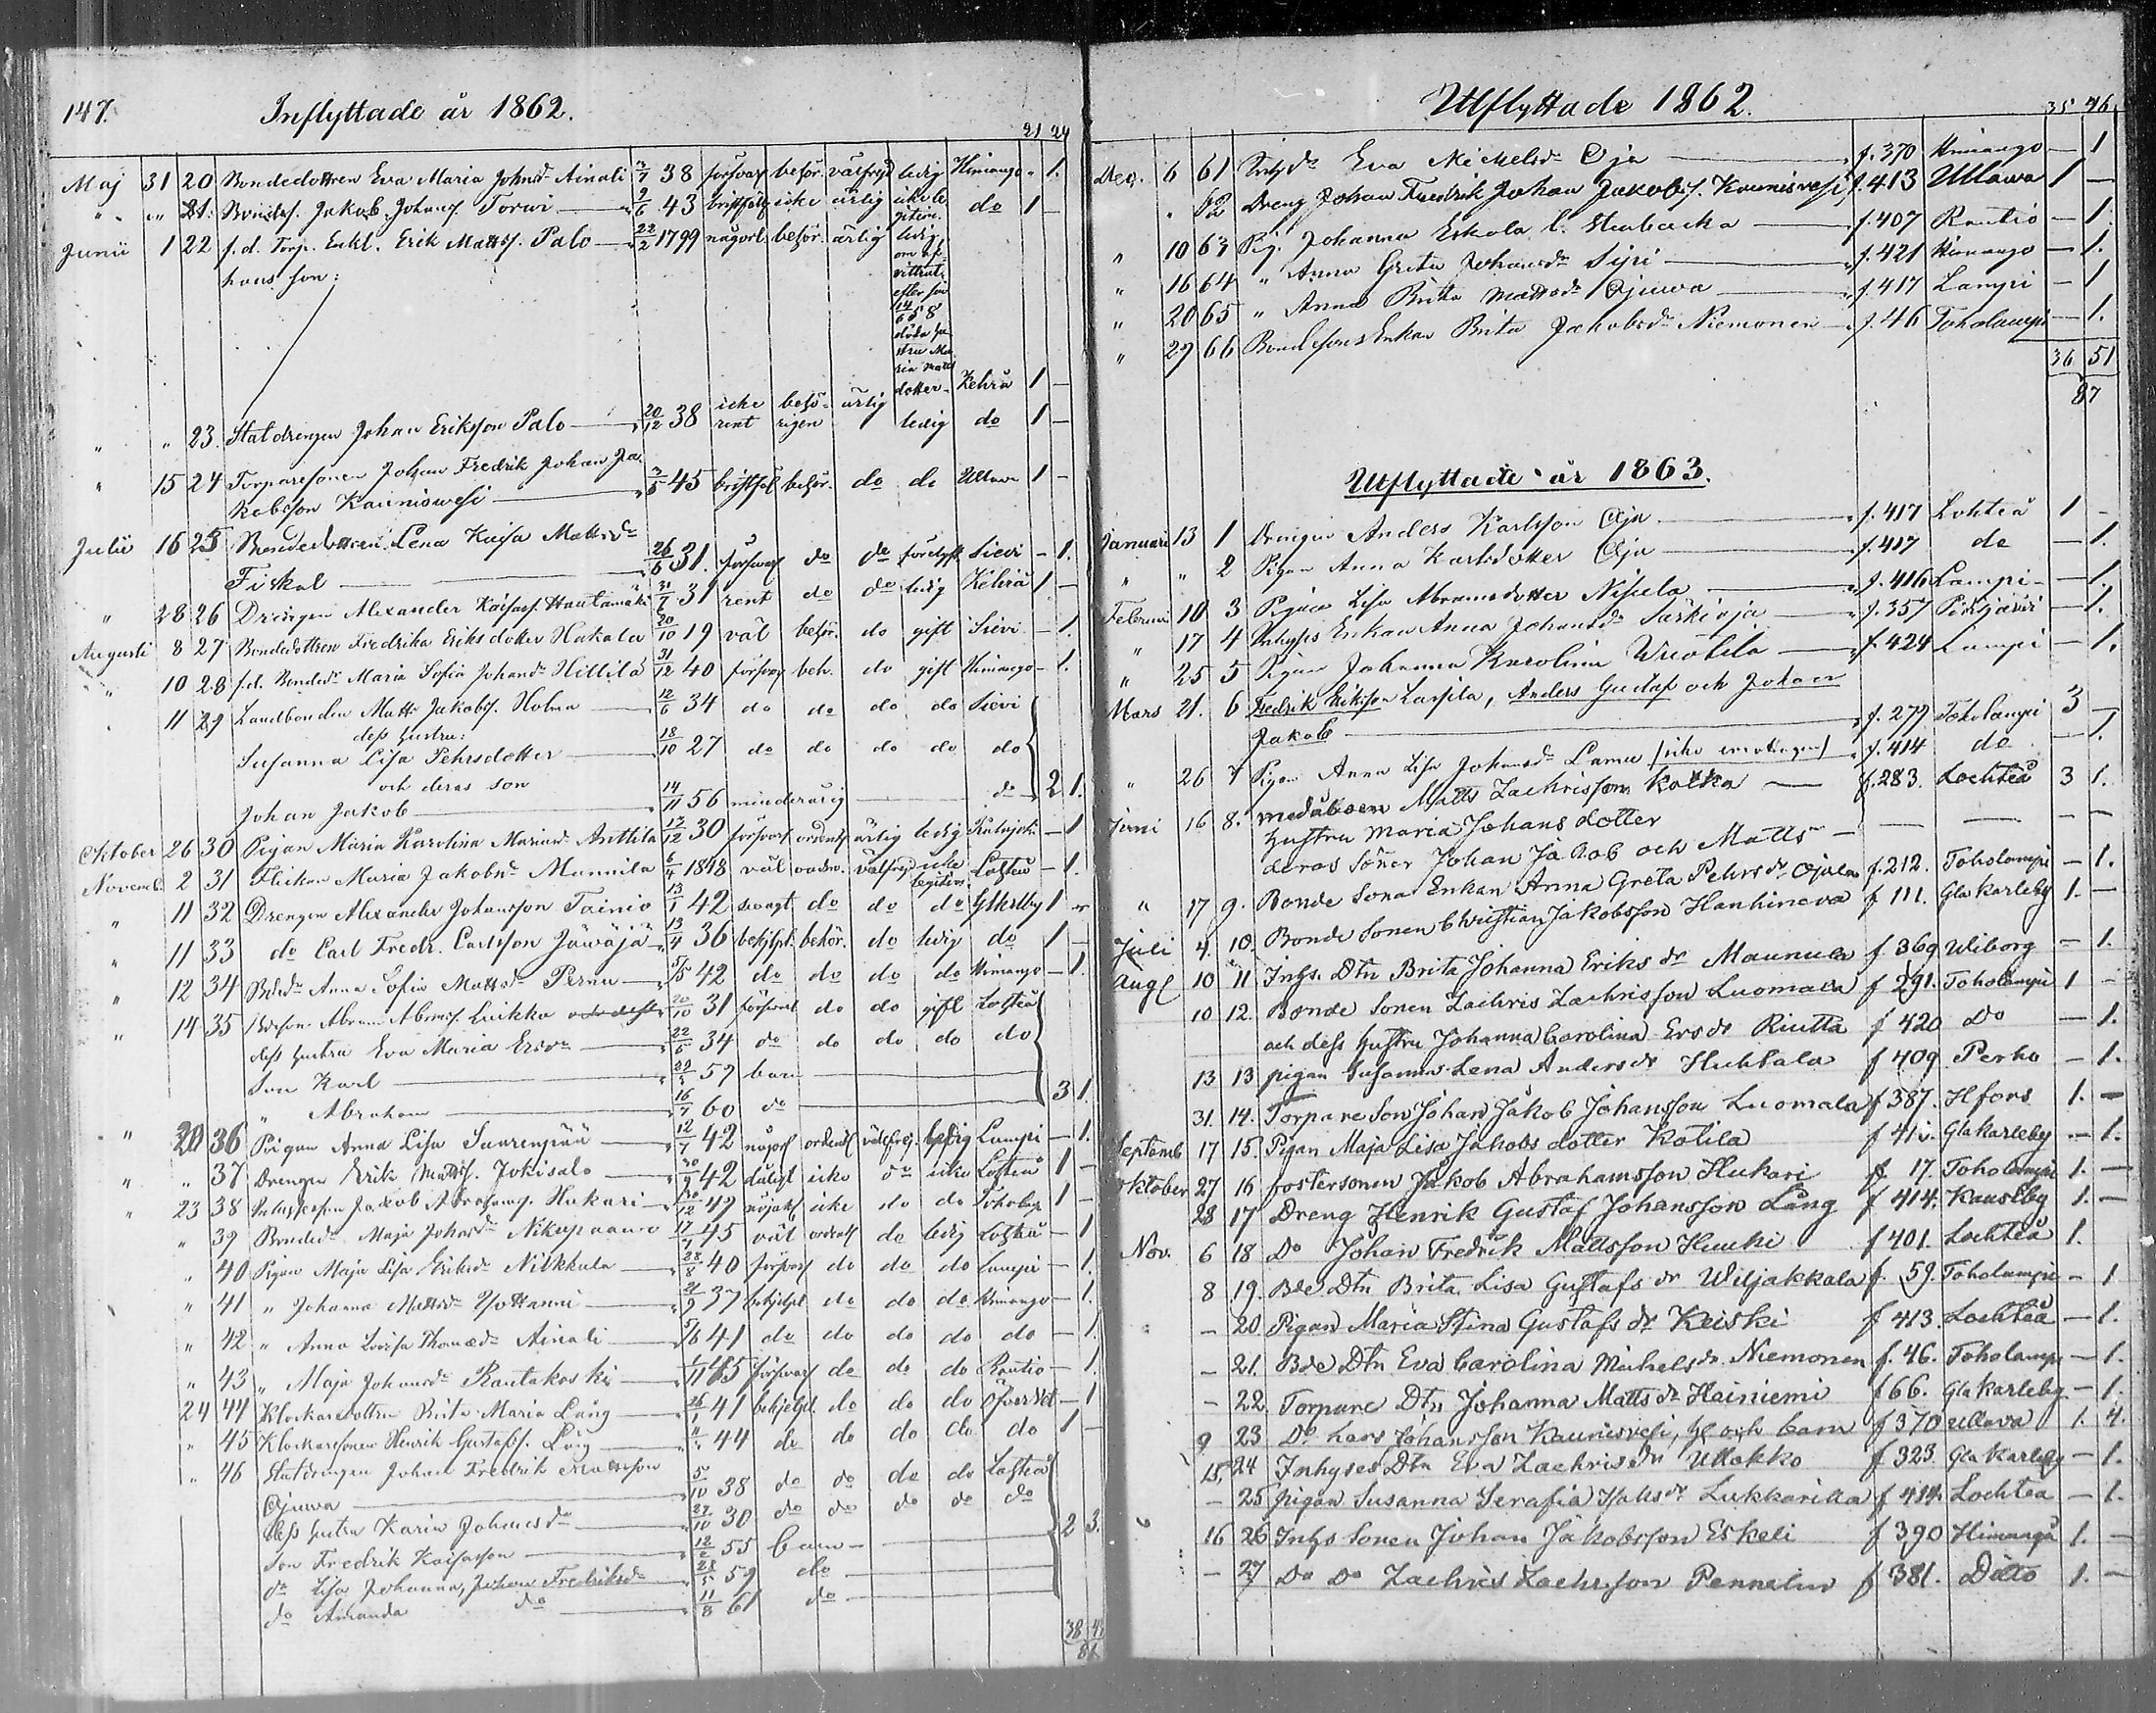 147. Inflyttade år 1862.
21 24
Maj 31 20 Bondedottren Eva Maria Johnsdr Ainali 38 försvarl behör. välfrejd ledig Himango " 1.
" " 21. Bondes. Jakob Johans. Torwi 43 bristfäll icke ärlig do 1 —
Junii 1 22 f.d. Torp. Enkl. Erik Matts. Palo 22/2 1799 någorl behör. ärlig ledig
hans son:
efter sin
14/6 58
döda hu
stru Ma
ria Matts
dotter Kelviå 1 —
" " 23. Statdrengen Johan Eriksson Palo 20/12 38 icke rent behörigen ärlig ledig do 1 —
" 15 24 Torparesonen Johan Fredrik Johan Ja
kobsson Kauniswesi 45 bristfäl behör. do do Ullava 1 —
Julii 16 25 Bondedottren Lena Kaisa Mattsdr
Fiskal 26/6 31. försvarl do do Sievi — 1.
" 28 26 Drengen Alexander Kaisas. Hautamäki 31/7 31 rent do do ledig Kelviå 1 —
Augusti 8 27 Bondedottren Fredrika Eriksdotter Hakala 30/10 19 väl behör. do gift Sievi — 1.
" 10 28 f.d. Bondedr Maria Sofia Johansdr Hillilä 31/12 40 försvarl beh. do gift Himango — 1.
11 29 Landbonden Matts Jakobs. Holma 12/6 34 do do do do Sievi
dess hustru:
Susanna Lisa Pehrsdotter 18/10 27 do do do do do
och deras son
Johan Jakob 14/11 56 minderårig do 2 1.
Oktober 26 30 Pigan Maria Karolina Mariasd Anttila 12/12 30 försvarl ordentl ärlig ledig — 1
Novemb. 2 31 Flickan Maria Jakobsdr Mannila 6/4 1848 väl ordn. välfrejd icke legitim. Lohteå — 1.
" 11 32 Drengen Alexander Johansson Tainio 13/1 42 svagt do do do Glkrlby 1 "
" 11 33 do Carl Fredr. Carlsson Jäwäjä 13/4 36 behjelpl. behör. do ledig do 1 —
" 12 34 Bdedr Anna Sofia Mattsdr Pernu 5/5 42 do do do do Himango — 1.
" 14 35 Bdeson Abram Abrams. Luikko 20/10 31 försvarl do do gift Lohteå
dess hustru Eva Maria Ersdr 22/6 34 do do do do do
Son Karl 57 barn
" Abraham 16/7 60 do 3 1.
" 20 36 Pigan Anna Lisa Saarenpää 12/7 42 någorl ordentl välfrej. ledig Lampi — 1.
" " 37 Drengen Erik Matts. Jokisalo 42 dåligt icke do icke Lohteå 1 —
" 23 38 Inhysesson Jakob Abrahams. Hukari 49 nöjakt icke do do Toholmp 1 —
" 39 Bondedr Maja Johansdr Nikupaavo 45 väl ordentl do ledig Lohteå — 1
" 40 Pigan Maja Lisa Eriksdr Nikkula 28/8 40 försvarl do do do Lampi — 1.
" 41 " Johanna Mattsdr 37 behjelpl do do do Himango — 1.
" 42 " Anna Lovisa Thomasdr Ainali 41 do do do do do — 1.
" 43 " Maja Johansdr Rautakoski 45 försvarl do do do Rautio — 1.
24 44 Klockaredottren Brita Maria Lång 26/1 41 behjelpl do do do — 1
" 45 Klockaresonen Henrik Gustafs. Lång 44 do do do do do 1 —
" 46 Statdrengen Johan Fredrik
Ojuwa 5/10 38 do do do do Lohteå
dess hustru Karin Johansdr 27/10 30 do do do do do
Son Fredrik 55 barn 2 3.
dr Lisa Johanna, Johan Fredriksdr 59 do
do Amanda do 11/8 61 do
38 43
81
Utflyttade 1862.
35 46
Dec. 6 61 Inhysdr Eva Michelsdr Oja f. 370 Himango — 1
" 62 Dreng Johan Fredrik Johan Jakobs. Kaunisvesi f. 413 Ullawa 1 —
" 10 63 Pig. Johanna Eskola l. Stenbacka f. 407 Rautio — 1.
" 16 64 " Anna Greta Johansdr Siiri f. 421 Himango — 1.
" 20 65 " Anna Brita Mattsdr Ojuwa f. 417 Lampi — 1
" 29 66 Bondesons Enkan Brita Jakobsdr Niemonen f. 46 Toholampi — 1.
36 51
87
Utflyttade år 1863.
Januari 13 1 Drengen Anders Karlsson Oja f. 417 Lohteå 1 —
" " 2 Pigan Anna Karlsdotter Oja f. 417 do — 1.
Februari 10 3 Pigan Lisa Abramsdotter Nisula f. 416 Lampi — 1.
" 17 4 Inhyses Enkan Anna Johansdr Särkioja f. 357 Pihtjärvi — 1.
" 25 5 Pigan Johanna Karolina Wuotila f. 424 Lampi — 1.
Mars 21. 6 Fredrik Eriksson Laspila, Anders Gustaf och Johan
Jakob f. 279 Toholampi 3 —
" 26 7 Pigan Anna Lisa Johansdr Lamu (icke emottagen) f. 414 do — 1.
Juni 16 8. Matts Zachrisson Kotka f. 283. Lochteå 3 1.
Hustru Maria Johans dotter
deras Söner Johan Jakob och Matts — — — —
" 17 9. Bonde Sona Enkan Anna Greta Pehrs dr Ojala f. 212. Toholampi — 1.
Juli 4. 10. Bonde Sonen Christian Jakobsson Hanhineva f 111. Gla karleby 1. —
Augs 10 11 Inhs. Dtn Brita Johanna Eriks dr Maunula f 369 Wiborg — 1.
10 12. Bonde Sonen Zachris Zachrisson Luomala f 291. Toholampi 1 —
och dess hustru Johanna Carolina Ers dr Riutta f 420 Do — 1.
13 13 pigan Susanna Lena Anders dr Huhtala f 409 Perho — 1.
31. 14. Torpare Son Johan Jakob Johansson Luomala f 387. Hfors 1. —
Septemb 17 15. Pigan Maja Lisa Jakobs dotter Kotila Gla karleby — 1.
Oktober 27 16 fostersonen Jakob Abrahamsson Hukari f 17. Toholampi 1. —
28 17 Dreng Henrik Gustaf Johansson Lång f 414. Kauslby 1. —
Nov. 6 18 Do Johan Fredrik Mattsson Huuki f 401. Lochteå 1.
8 19. Bde Dtn Brita Lisa Gustafs dr Wiljakkala f. 59. Toholampi — 1
— 20 Pigan Maria Stina Gustafs dr Keiski f 413. Lochteå — 1.
— 21. Bde Dtn Eva Carolina Michels dr Niemonen f. 46. Toholamp — 1.
— 22. Torpare Dtn Johanna Matts dr Hainiemi f 66. Gla karleby. — 1.
9 23 Do Lars Johansson Kaunisvesi, H och barn f 370 Ullava 1. 4.
15. 24 Inhyses Dtn Eva Zachris dr Ullakko f. 323. Gla karleby — 1.
— 25 pigan Susanna Serafia Isaks dr Lukkarilla f 414. Lochtea — 1.
16 26 Inhs Sonen Johan Jakobsson Eskeli f 390 Himanga 1. —
— 27 Do Do Zachris Zachrisson Pennelin f 381. Ditto 1. —